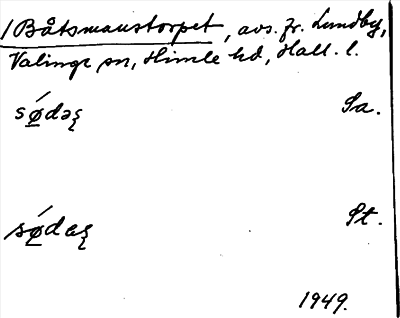 / Båtsmanstorpet, avs. fr. Lundby,
Valinge sn, Himle hd, Hall. l.
sǿ̲dəʂ Sa.
sǿ̲dɐʂ St.
1949.